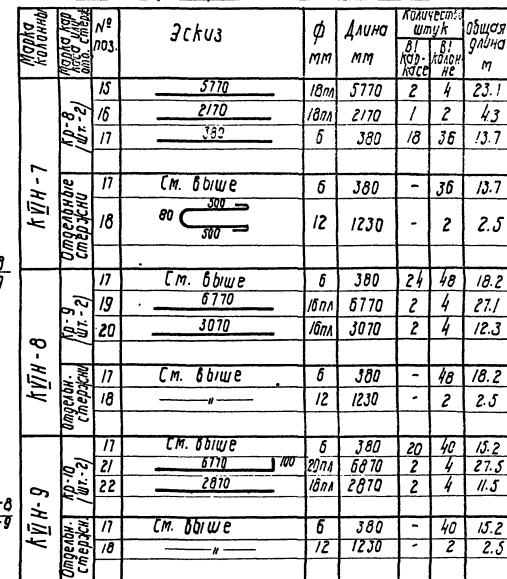 Марка колонны Марка кар каса или отд. стерж. №° поз. Эскиз ф мм Длина мм Количество штук Общая длина м
В 1 кар- касе В 1 колон- не
КVIН-7 Кр-8 (шт.-2) 15 5770 18пл 5770 2 4 23.1
16 2170 18пл 2170 1 2 4.3
17 380 6 380 18 36 13.7
Отдельные стержни 17 См. выше 6 380 - 36 13.7
18 80 500 500 12 1230 - 2 2.5
КVIН-8 Кр-9 (шт.-2) 17 См. выше 6 380 24 48 18.2
19 6770 16пл 6770 2 4 27.1
20 3070 16пл 3070 2 4 12.3
Отдельн. стержни 17 См. выше 6 380 - 48 18.2
18 —"— 12 1230 - 2 2.5
КVIН-9 Кр-10 (шт.-2) 17 См. выше 6 380 20 40 15.2
21 6770 100 20пл 6870 2 4 27.5
22 2870 18пл 2870 2 4 11.5
Отдельн. стержн. 17 См. выше 6 380 - 40 15.2
18 —"— 12 1230 - 2 2.5